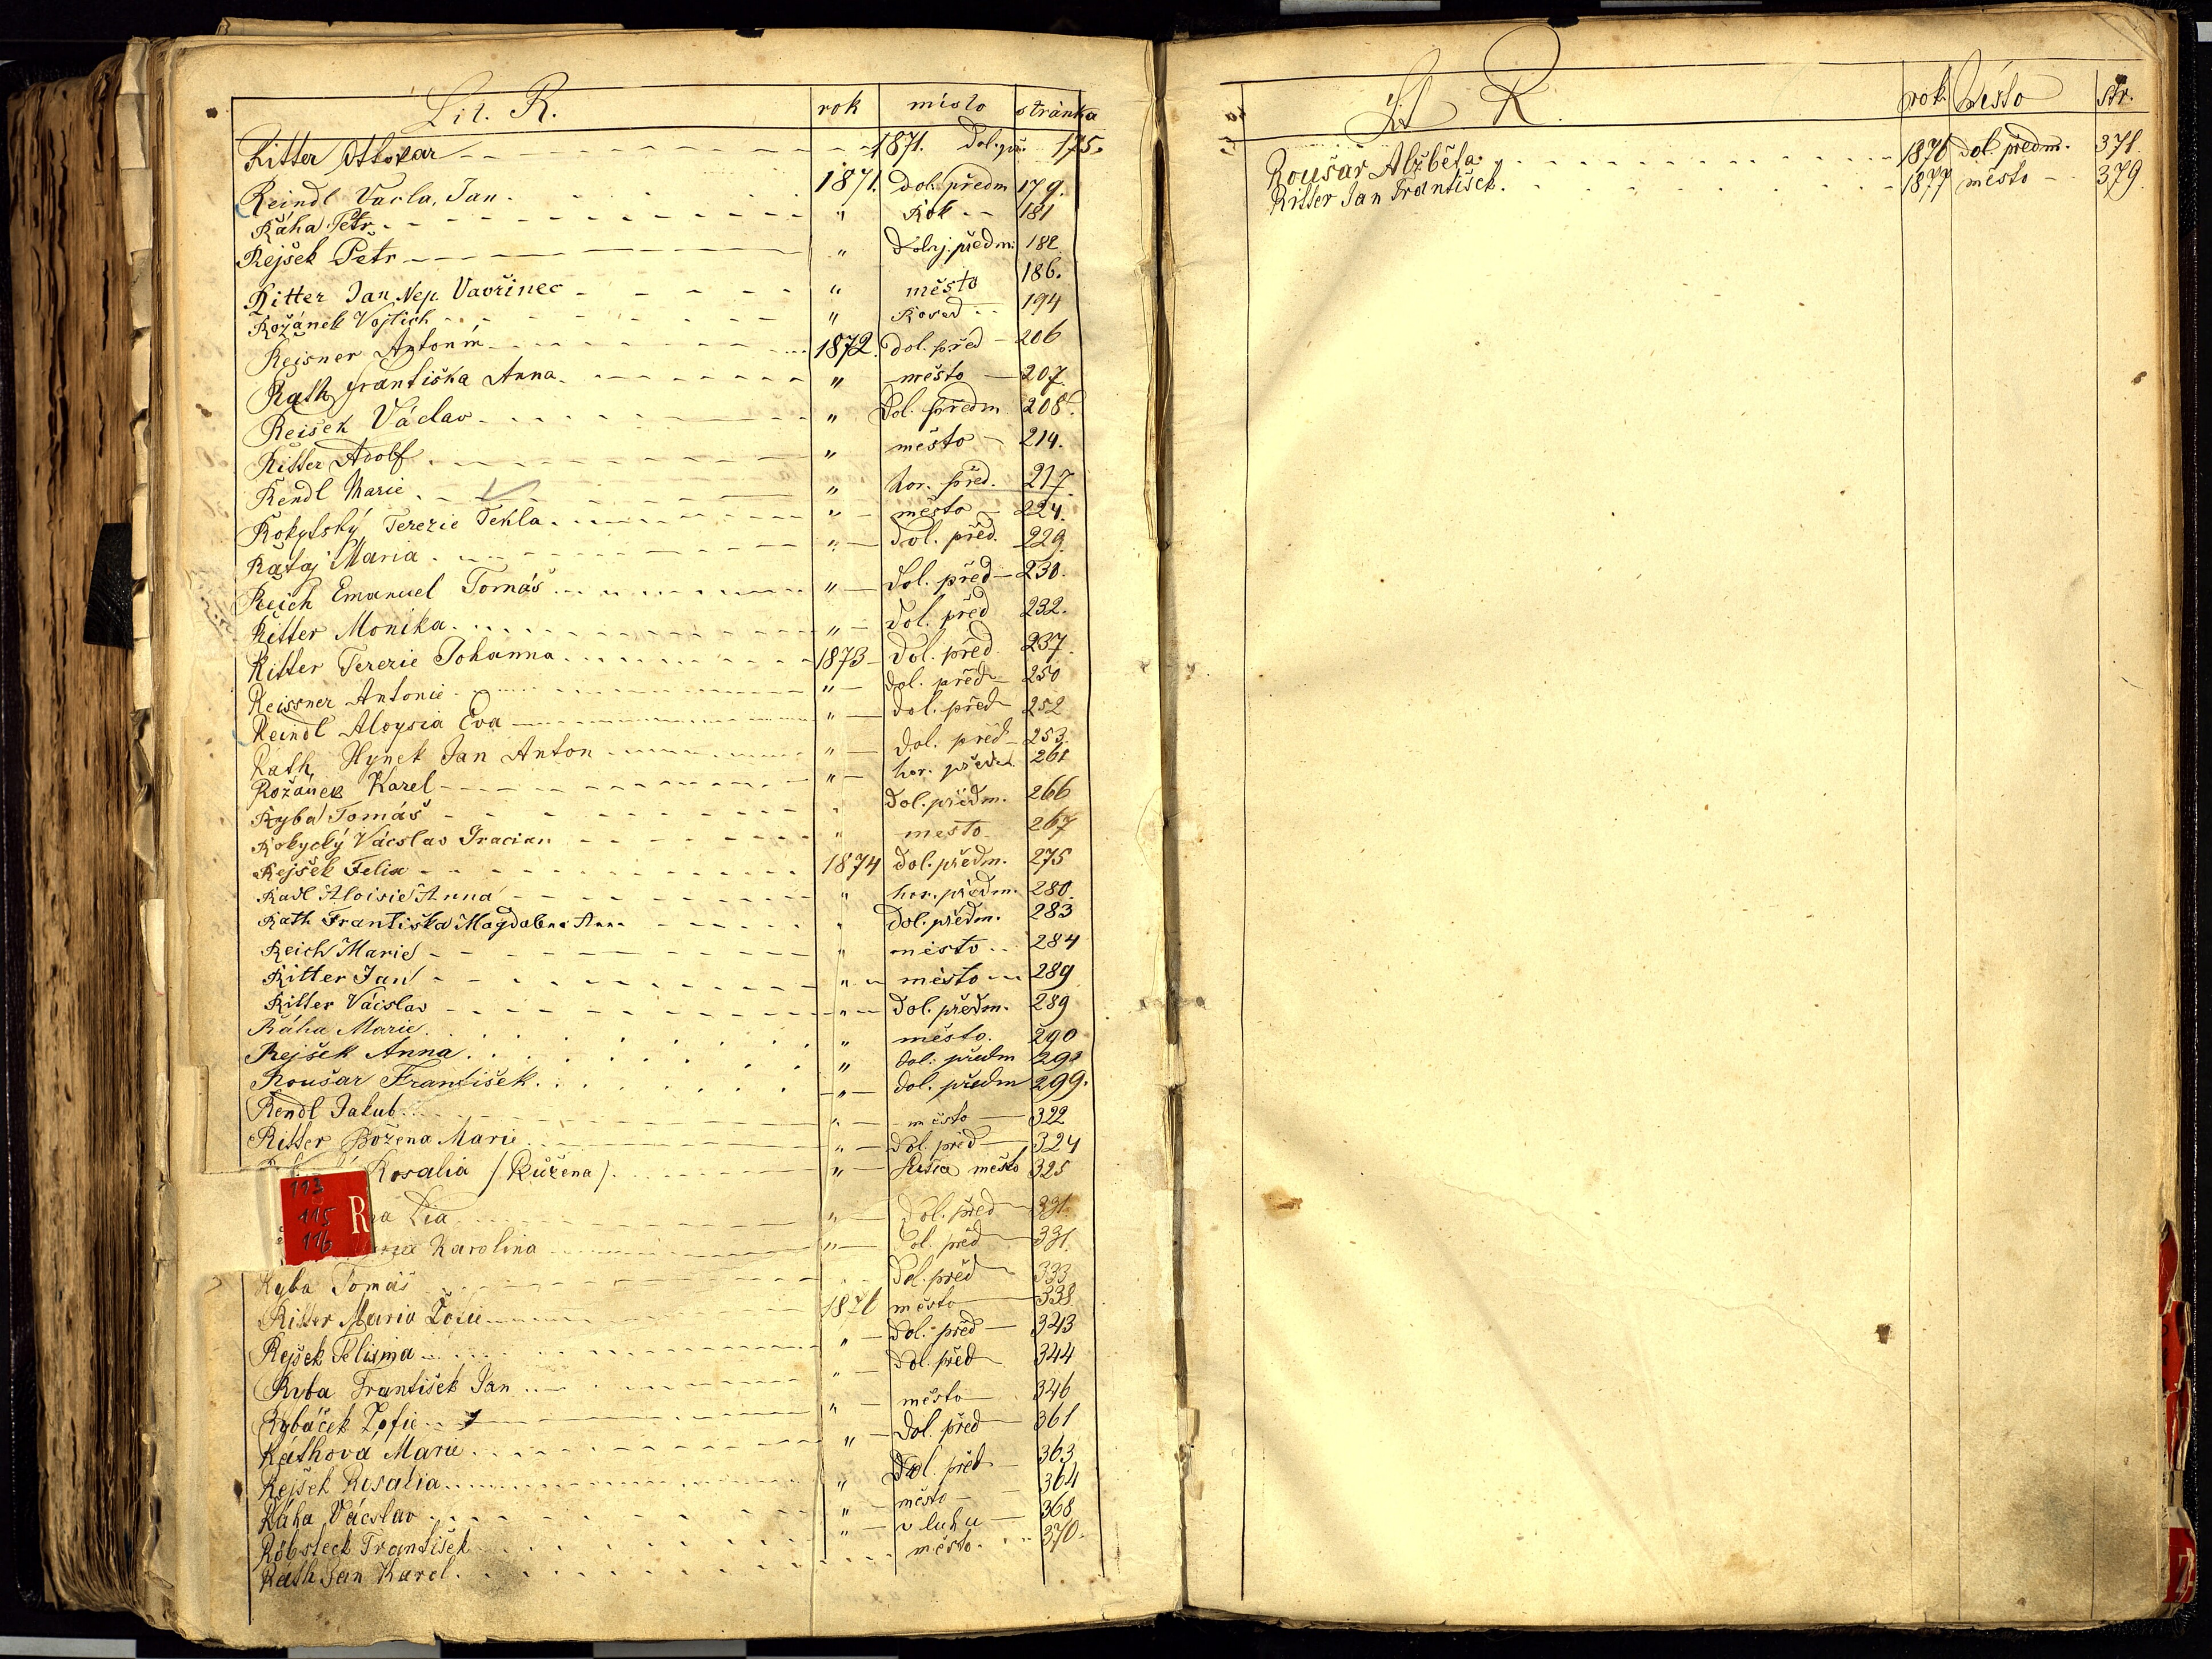 Lit. R. rok místo stránka
Ritter Ottokar 1871. Dol. př. 175.
Reindl Vacla, Jan 1871. Dol. předm 179.
Ráha Petr " Rok 181
Rejšek Petr " Dolnj. předm. 182
Ritter Jan Nep. Vavřinec " město 186.
Rožánek Vojtěch " 194
Reisner Antonín 1872. Dol. před 206
Rath Františka Anna " město 207
Reisek Václav " Dol. předm 208.
Ritter Adolf " město 214.
Rendl Marie " hor. před. 217.
Rokytský Terezie Tekla " město 224.
Rataj Maria " Dol. před. 229.
Reich Emanuel Tomáš " Dol. před 230.
Ritter Monika " Dol. před 232.
Ritter Terezie Johanna 1873 Dol. před. 237.
Reissner Antonie " dol. před 250
Reindl Aloysia Eva " dol. před 252
Rath Hynek Jan Anton " Dol. před 253.
Rožánek Karel " hor. předm. 261
Ryba Tomáš " Dol. předm. 266
Rokycký Vácslav Gracian " mesto 267
Rejšek Felix 1874 Dol. předm. 275
Radl Aloisie Anna " hor. předm. 280.
Rath Františka Magdalena Anna " Dol. předm. 283
Reich Marie " město 284
Ritter Jan " město 289
Ritter Václav " Dol. předm. 289
Ráha Marie " město. 290
Rejšek Anna " dol. předm
Roušar František " dol. předm 299.
Rendl Jakub " město 322
Ritter Božena Marie " Dol. před 324
Rosalia / Růžena / " město 325
" Dol. před 331.
Karolina " Dol. před 331.
Ryba Tomáš Dol. před 333
Ritter Maria 1876 město 338
Rejšek " Dol. před 343
Ryba František Jan " Dol. před 344
Rybáček Žofie " město 346
Ráthova Marie " Dol. před 361
Rejšek Rosalia " Dol. před 363
Ráha Vácslav " město 364
Röbsteck František " v luhu 368
Rath Jan Karel město 370.
113
115 R
116
Lit R. rok. Město Str.
Roušar Alžběta 1876 dol. předm. 371.
Ritter Jan František. 1877 město 379